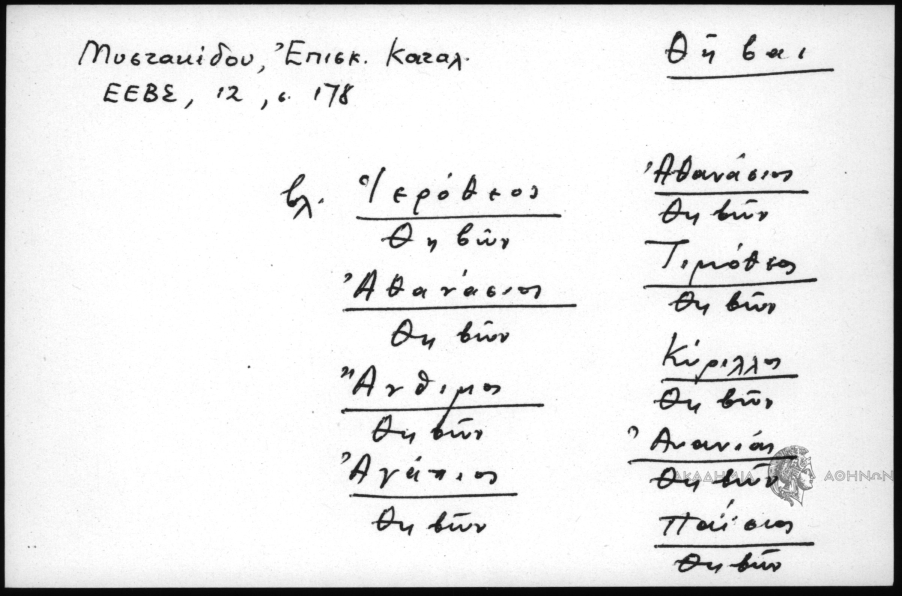 Μυστακίδου, Ἐπισκ. Καταλ.
ΕΕΒΣ, 12, σ. 178
Θῆβαι
βλ. Ἱερόθεος
Θηβῶν
Ἀθανάσιος
Θηβῶν
Ἄνθιμος
Θηβῶν
Ἀγάπιος
Θηβῶν
Ἀθανάσιος
Θηβῶν
Τιμόθεος
Θηβῶν
Κύριλλος
Θηβῶν
Ἀνανίας
Θηβῶν
Παΐσιος
Θηβῶν
ΑΚΑΔΗΜΙΑ ΑΘΗΝΩΝ